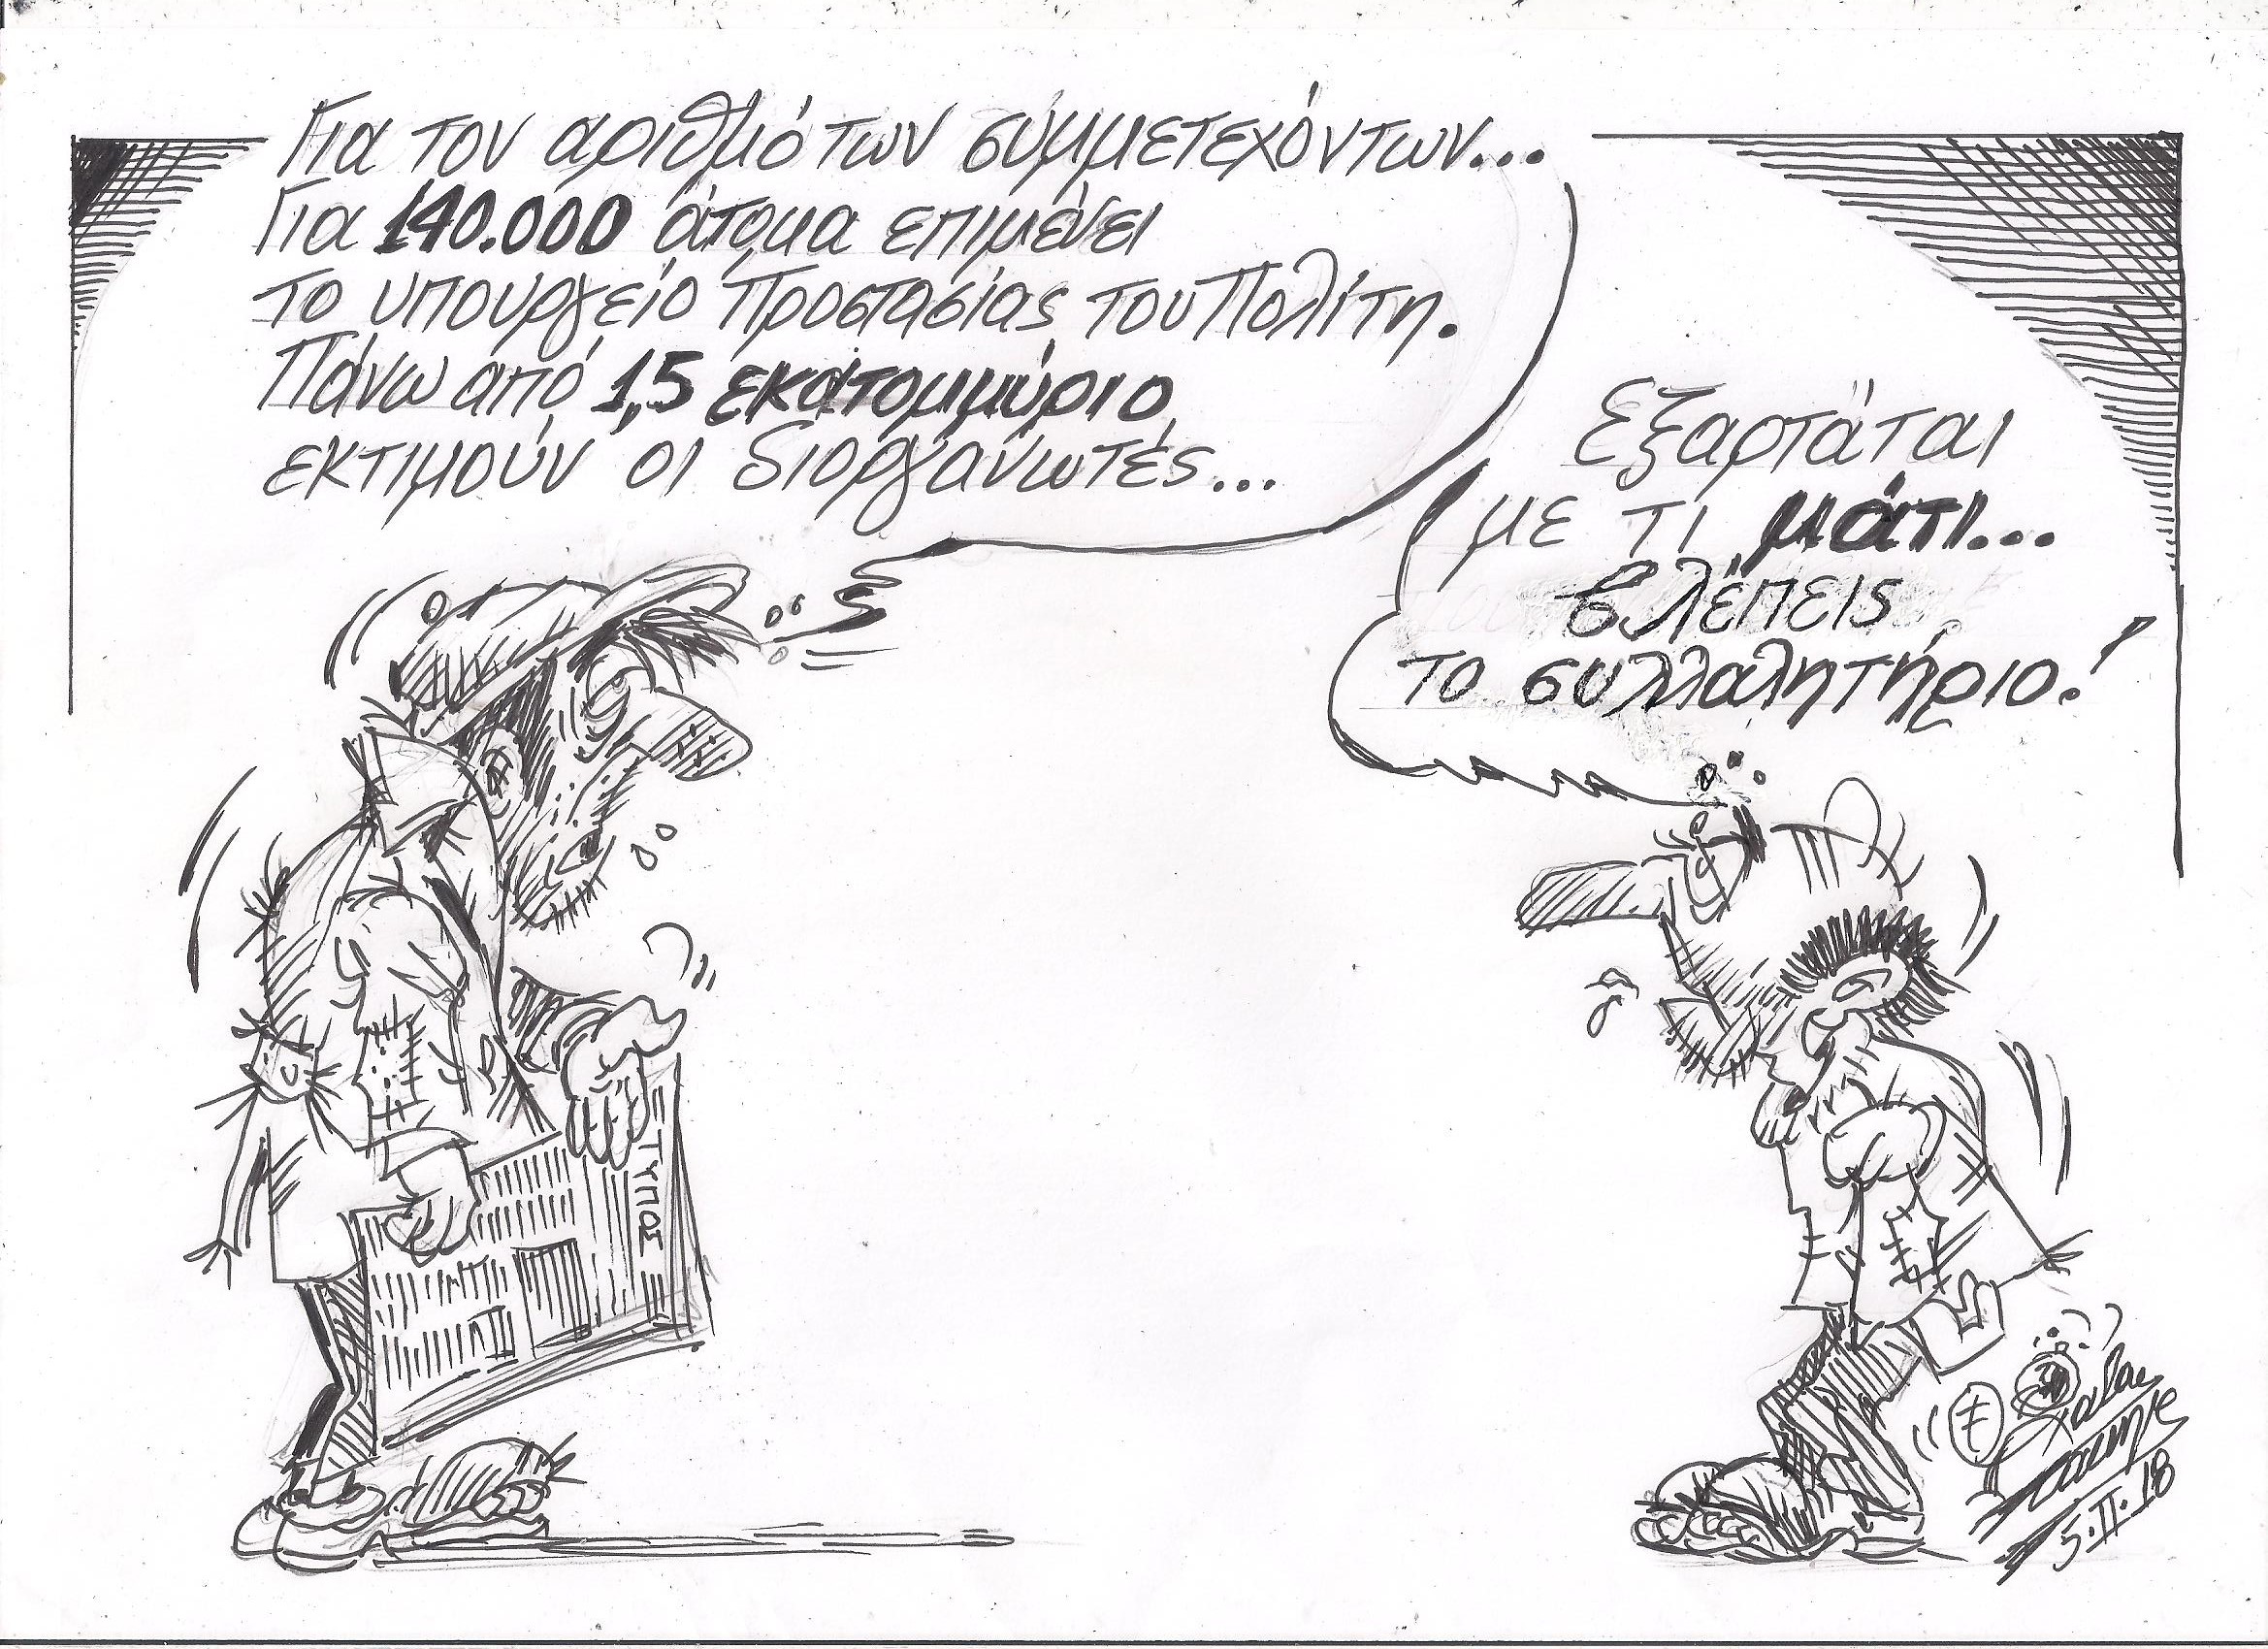 Για τον αριθμό των συμμετεχόντων...
Για 140.000 άτομα επιμένει
το υπουργείο Προστασίας του Πολίτη.
Πάνω από 1,5 εκατομμύριο
εκτιμούν οι διοργανωτές...
Εξαρτάται
με τι μάτι...
βλέπεις
το συλλαλητήριο!
ΤΥΠΟΣ
5.II.18